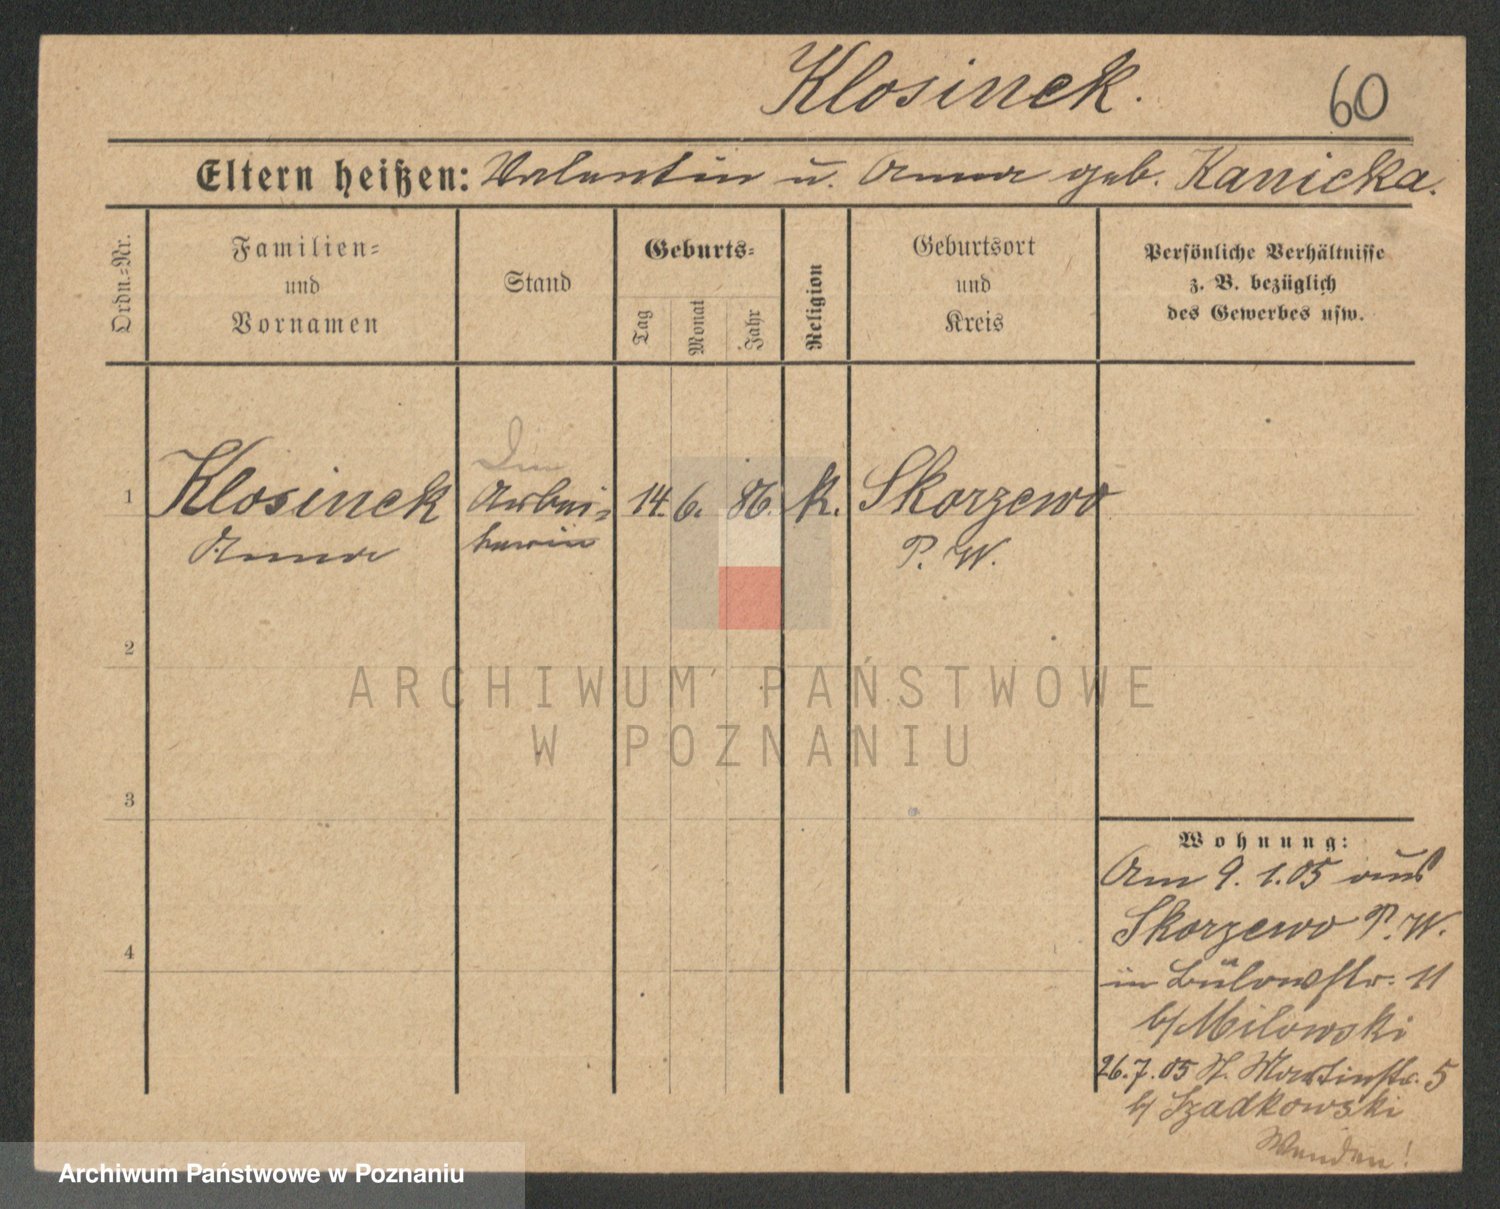 Klosinek.
60
Eltern heißen: Valentin u. Anna geb. Kanicka.
Ordn.-Nr.
Familien-
und
Vornamen
Stand
Geburts-
Tag
Monat
Jahr
Religion
Geburtsort
und
Kreis
Persönliche Verhältnisse
z. B. bezüglich
des Gewerbes usw.
1
Klosinek
Anna
Arbei-
terin
14. 6. 86.
k.
Skorzewo
P. W.
2
3
4
ARCHIWUM PAŃSTWOWE
W POZNANIU
Wohnung:
Am 9. 1. 05 aus
Skorzewo P. W.
in Bülowstr. 11
b/ Milowski
26. 7. 05 St. Martinstr. 5
b/ Szadkowski
Wenden!
Archiwum Państwowe w Poznaniu